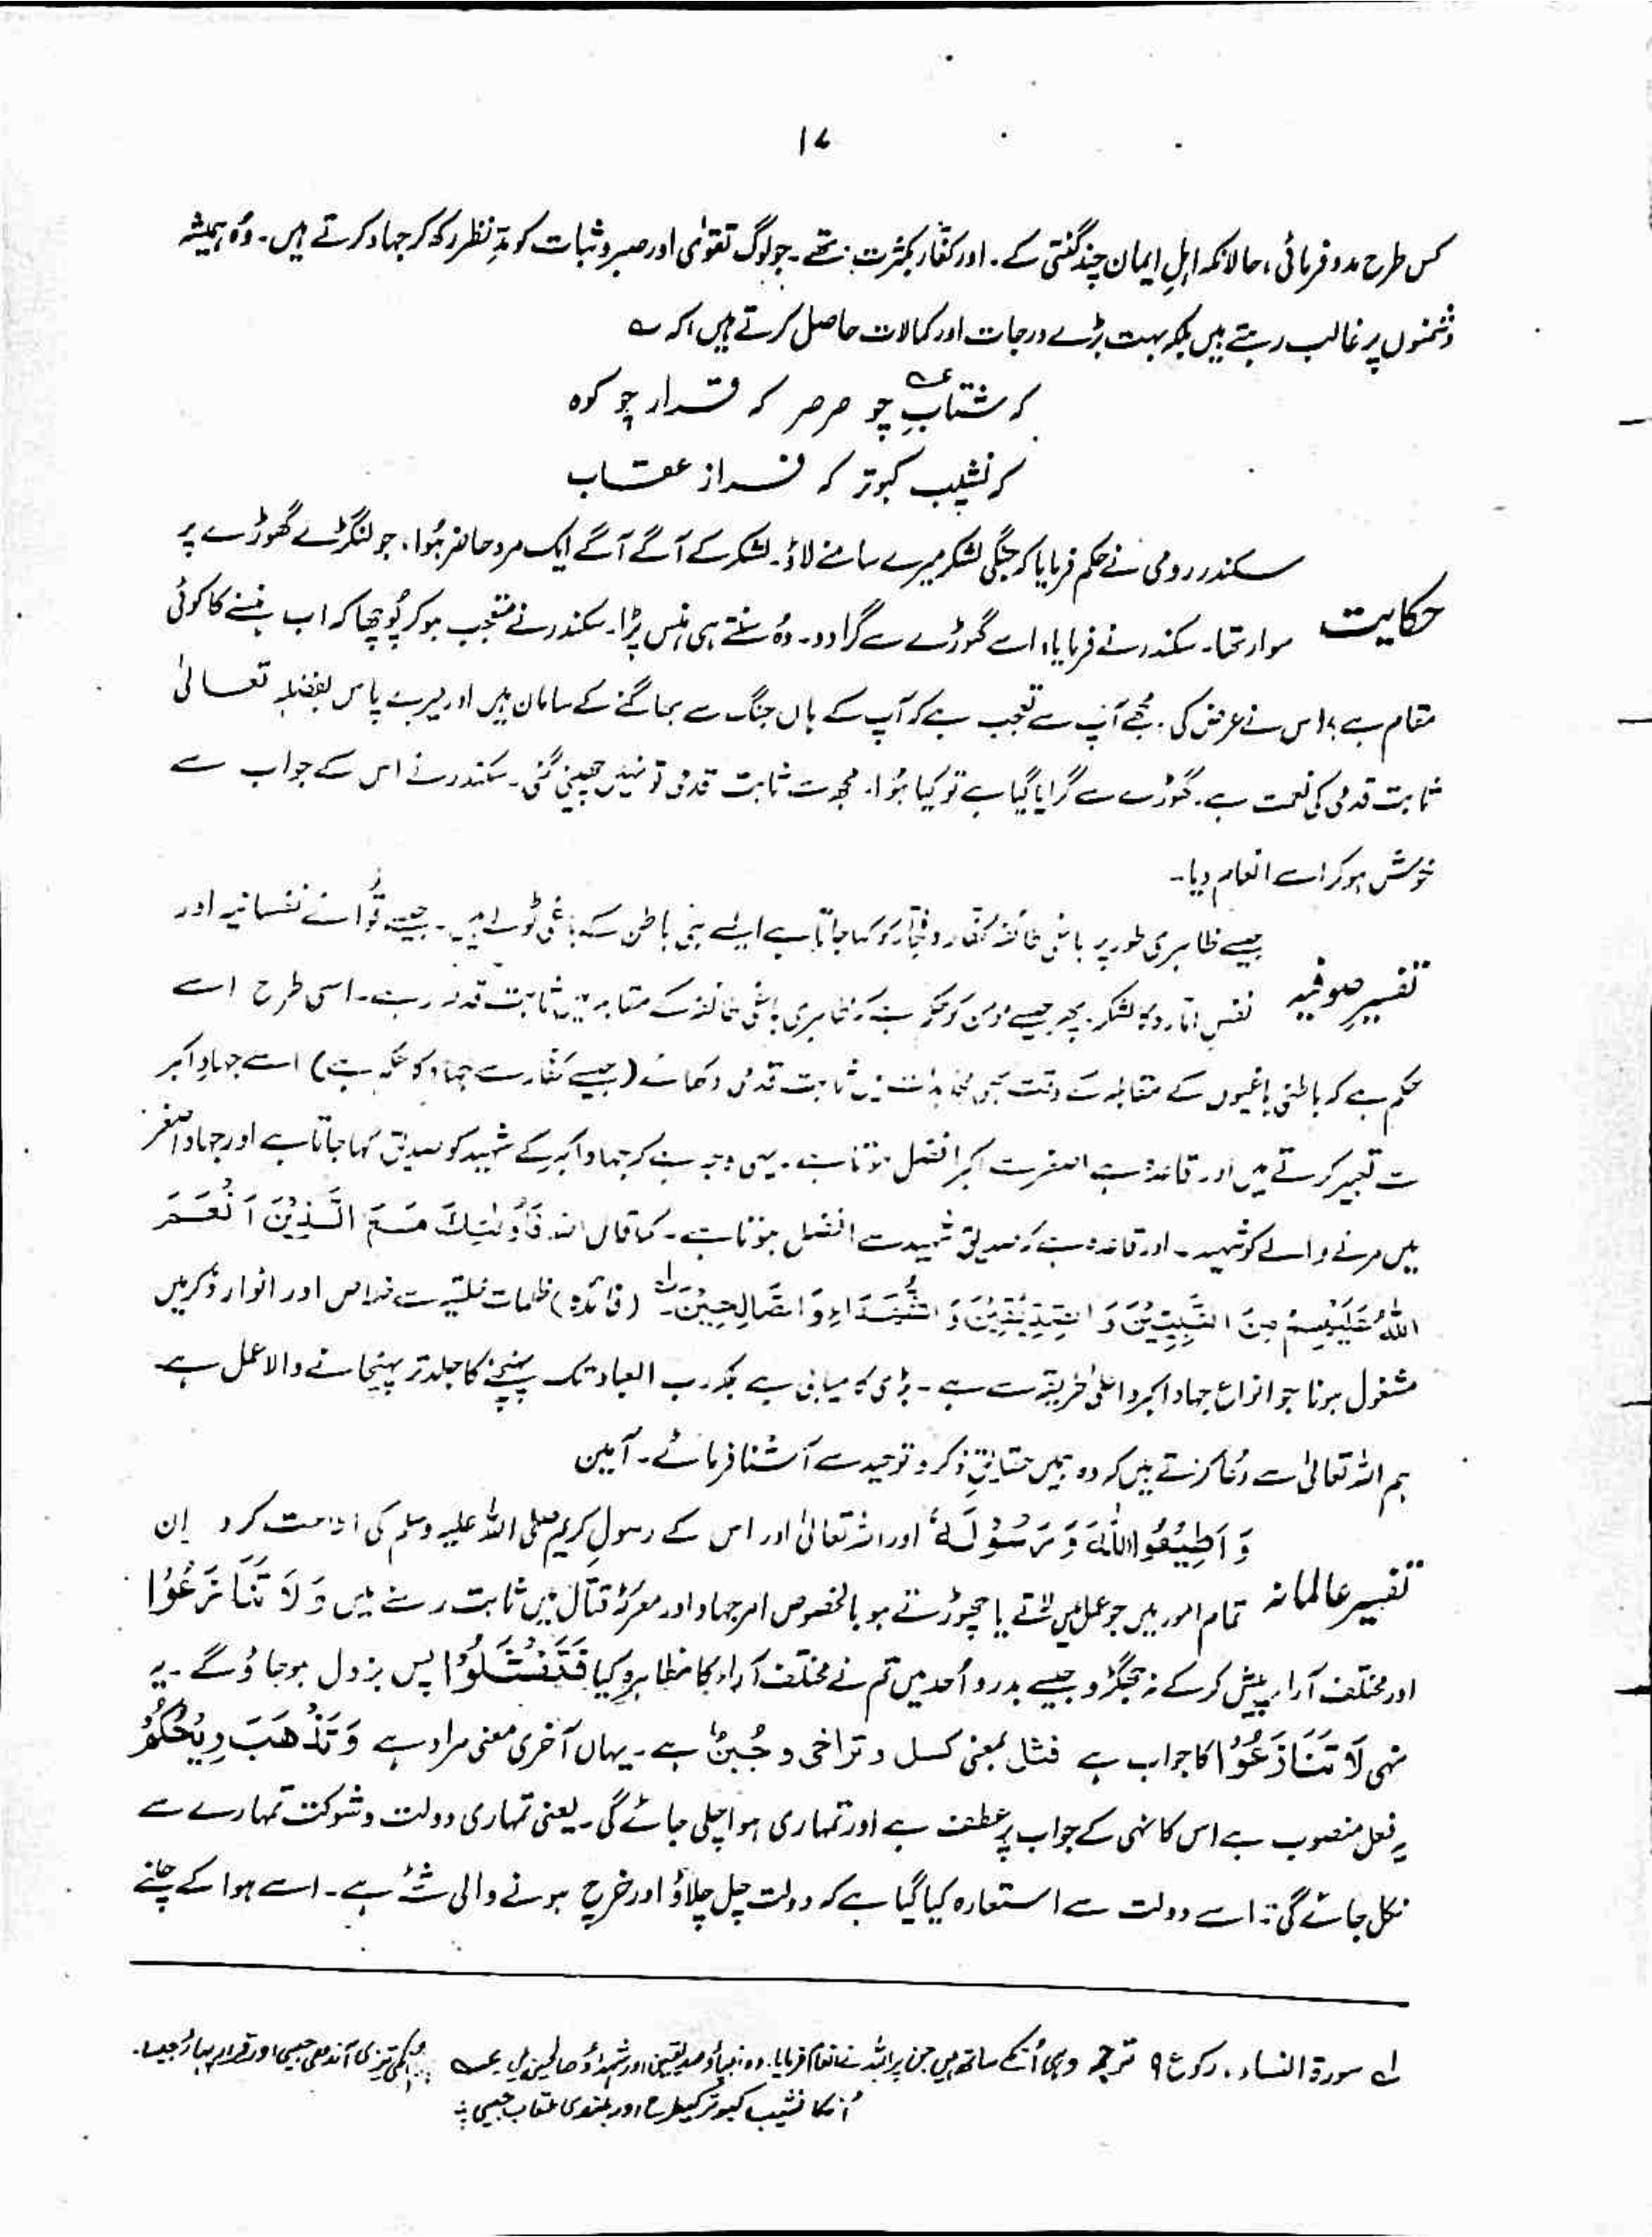 ۱۷
کس طرح مدد فرمائی، حالانکہ اہلِ ایمان چند گنتی کے۔ اور کفّار بکثرت تھے۔ جو لوگ تقوٰی اور صبر و ثبات کو مدِّ نظر رکھ کر جہاد کرتے ہیں۔ وُہ ہمیشہ
دُشمنوں پر غالب رہتے ہیں بلکہ بہت بڑے درجات اور کمالات حاصل کرتے ہیں کہ ؎
کہ شتابِ چو صرصر کہ قرار چو کوہ
کہ نشیب کبوتر کہ فراز عقاب
حکایت سکندر رومی نے حکم فرمایا کہ جنگی لشکر میرے سامنے لاؤ۔ لشکر کے آگے آگے ایک مرد حاضر ہُوا، جو لنگڑے گھوڑے پر
سوار تھا۔ سکندر نے فرمایا، اسے گھوڑے سے گرا دو۔ وُہ سنتے ہی ہنس پڑا۔ سکندر نے متعجب ہو کر پُوچھا کہ اب ہنسنے کا کوئی
مقام ہے؟ اس نے عرض کی۔ مجھے آپ سے تعجب ہے کہ آپ کے ہاں جنگ سے بھاگنے کے سامان ہیں اور میرے پاس بفضلہ تعالیٰ
ثابت قدمی کی نعمت ہے۔ گھوڑے سے گرایا گیا ہے تو کیا ہُوا۔ مجھ سے ثابت قدمی تو نہیں چھینی گئی۔ سکندر نے اس کے جواب سے
خوش ہو کر اسے انعام دیا۔
تفسیرِ صوفیہ جیسے ظاہری طور پر باغی طائفہ کفّار و فجّار کو کہا جاتا ہے ایسے ہی باطن کے باغی ٹولے ہیں۔ جیسے قوائے نفسانیہ اور
نفسِ امّارہ کا لشکر۔ پھر جیسے مومن کو حکم ہے کہ ظاہری باغی طائفہ کے مقابلہ میں ثابت قدم رہے۔ اسی طرح اسے
حکم ہے کہ باطنی باغیوں کے مقابلہ کے وقت بھی مجاہدات میں ثابت قدمی دکھائے (جیسے کفّار سے جہاد کو حکم ہے) اسے جہادِ اکبر
سے تعبیر کرتے ہیں اور قاعدہ ہے اصغر سے اکبر افضل ہوتا ہے۔ یہی وجہ ہے کہ جہاد اکبر کے شہید کو صدیق کہا جاتا ہے اور جہاد اصغر
میں مرنے والے کو شہید۔ اور قاعدہ ہے کہ صدیق شہید سے افضل ہوتا ہے۔ کما قال اللہ فَأُولٰئِکَ مَعَ الَّذِیْنَ اَنْعَمَ
اللّٰہُ عَلَیْہِمْ مِنَ النَّبِیّٖنَ وَ الصِّدِّیْقِیْنَ وَ الشُّھَدَاءِ وَ الصَّالِحِیْنَ۔؁۱ (فائدہ) ظلمات خلقیہ سے خلاص اور انوار ذکر میں
مشغول ہونا جو انواع جہاد اکبر و اعلیٰ طریقہ سے ہے۔ بڑی کامیابی ہے بلکہ رب العباد تک پہنچنے کا جلد تر پہنچانے والا عمل ہے۔
ہم اللہ تعالیٰ سے دُعا کرتے ہیں کہ وہ ہمیں حقایقِ ذکر و توحید سے آشنا فرمائے۔ آمین
تفسیر عالمانہ وَ اَطِیْعُوا اللّٰہَ وَ رَسُوْلَہٗ اور اللہ تعالیٰ اور اس کے رسولِ کریم صلی اللہ علیہ وسلم کی اطاعت کرو اِن
تمام امور میں جو عمل میں لاتے یا چھوڑتے ہو بالخصوص امر جہاد اور معرکۂ قتال میں ثابت رہنے میں وَلَا تَنَازَعُوْا
اور مختلف آراء پیش کر کے نہ جھگڑو جیسے بدر و اُحد میں تم نے مختلف آراء کا مظاہرہ کیا فَتَفْشَلُوْا پس بزدل ہو جاؤ گے۔ یہ
نہی لَا تَنَازَعُوْا کا جواب ہے فشل بمعنی کسل و تراخی و جُبن ہے۔ یہاں آخری معنی مراد ہے وَ تَذْھَبَ رِیْحُکُمْ
یہ فعل منصوب ہے اس کا نہی کے جواب پر عطف ہے اور تمہاری ہوا چلی جائے گی۔ یعنی تمہاری دولت و شوکت تمہارے سے
نکل جائے گی: اسے دولت سے استعارہ کیا گیا ہے کہ دولت چل چلاؤ اور خرچ ہونے والی شے ہے۔ اسے ہوا کے چلنے
؁۱ سورۃ النساء، رکوع ۹ ترجمہ وہی اُنکے ساتھ ہیں جن پر اللہ نے انعام فرمایا۔ وہ انبیاؑ و صدیقین اور شہدا و صالحین ہیں ؁ع تیزی آندھی جیسی اور قرار پہاڑ جیسا۔
اُنکا نشیب کبوتر کیطرح اور بلندی عقاب جیسی ہے